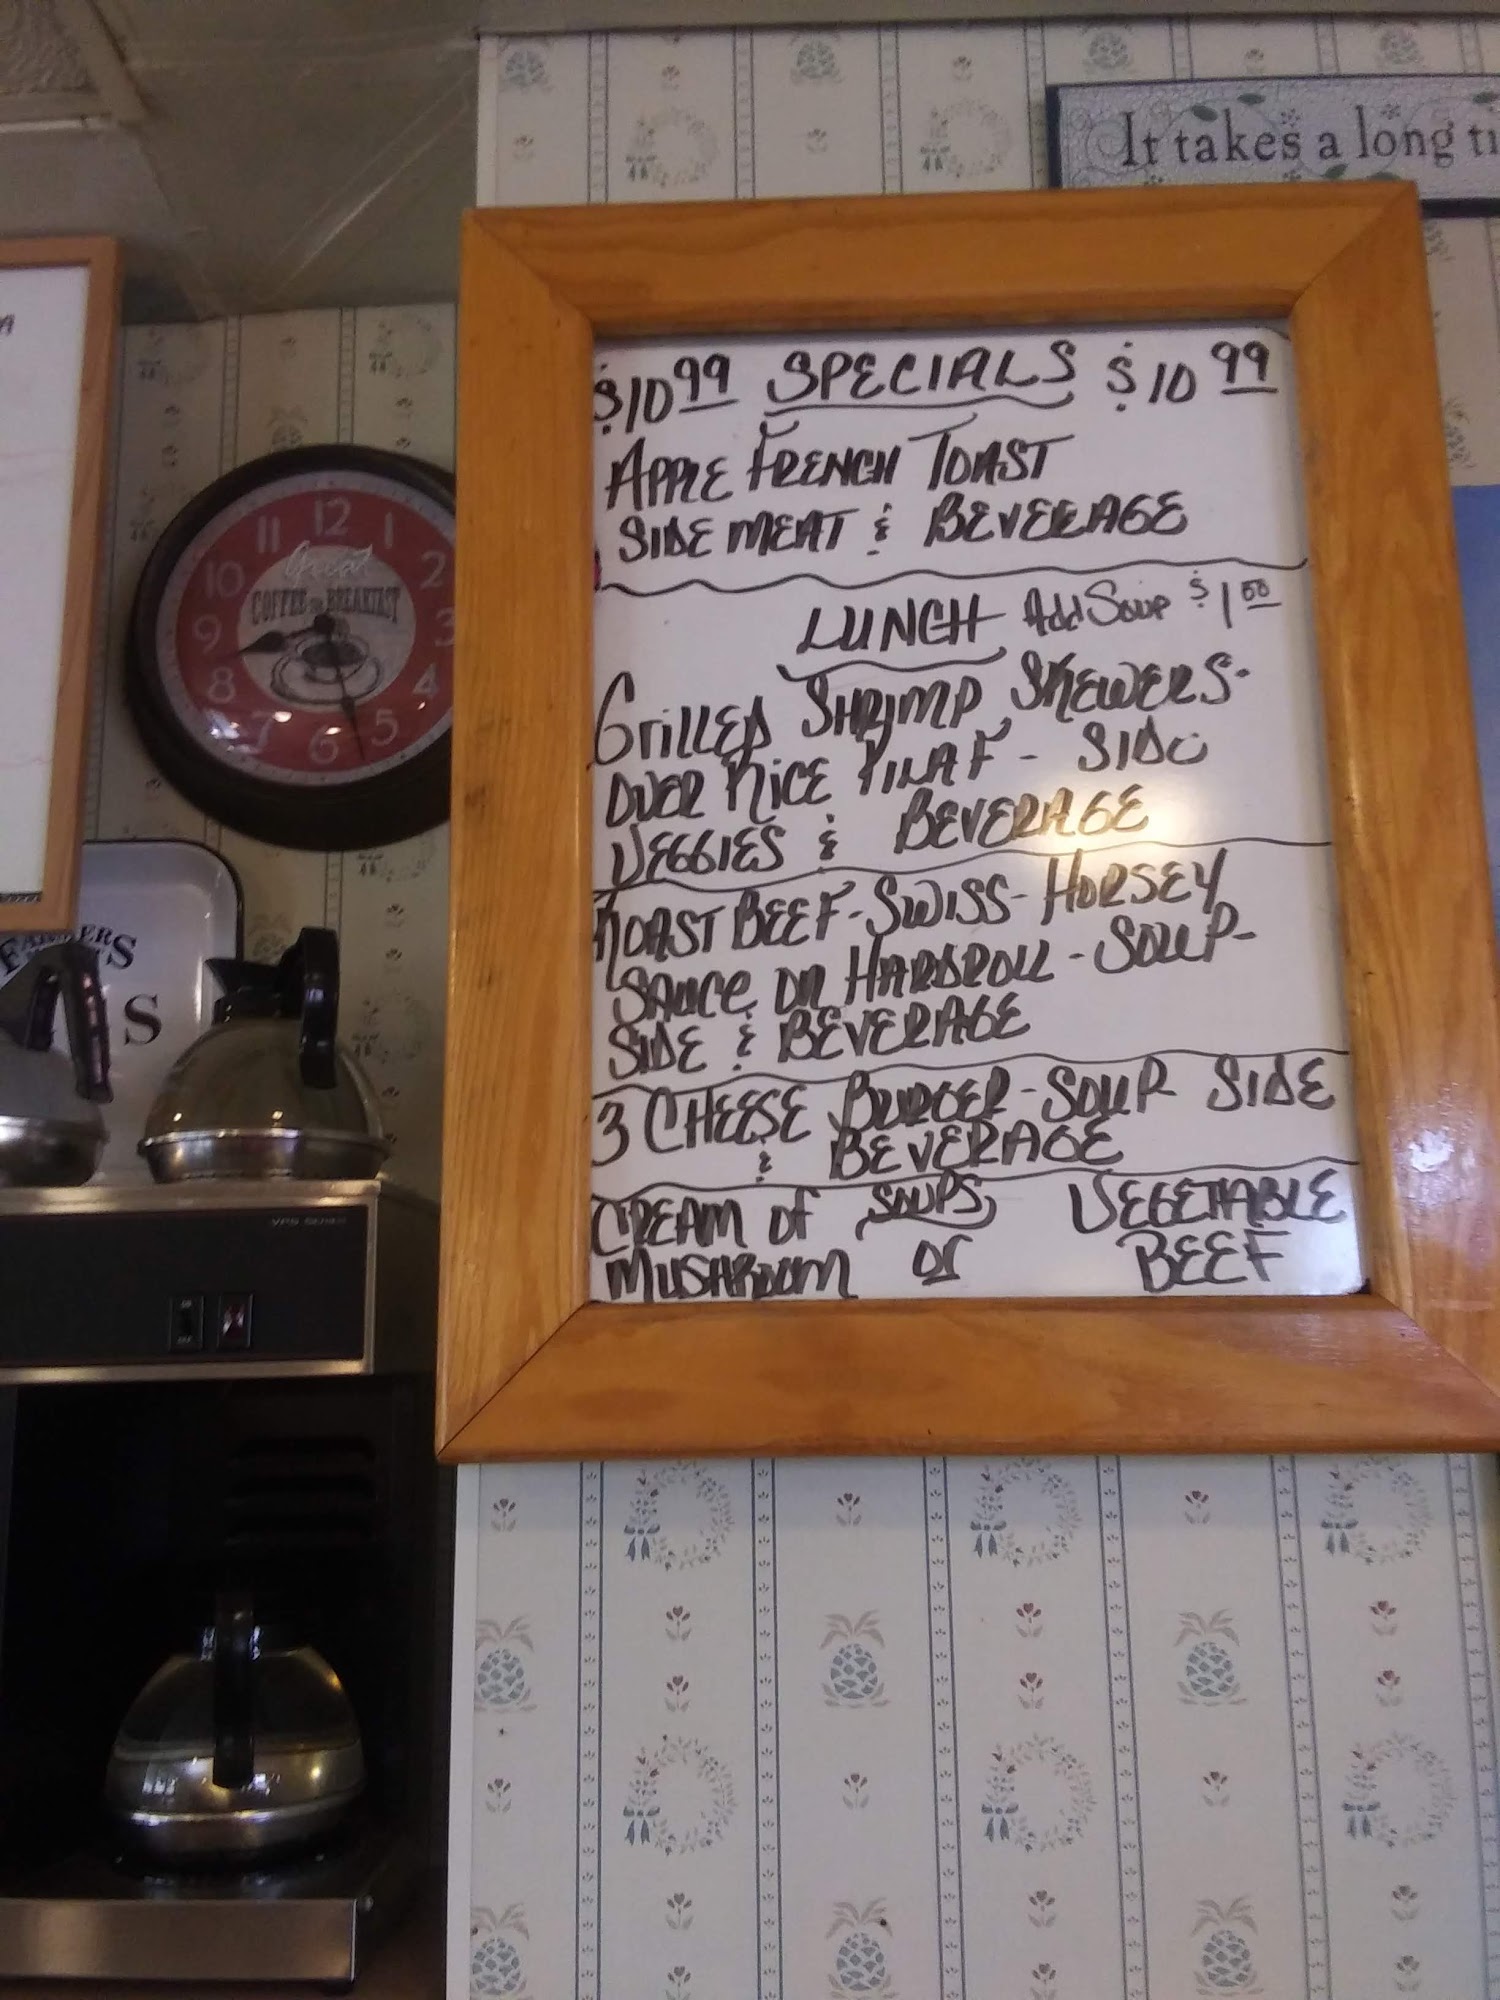 It takes a long ti
$10 99 SPECIALS $10 99
APPLE FRENCH TOAST
SIDE MEAT & BEVERAGE
LUNCH Add Soup $1 50
GrillED SHRIMP SKEWERS-
OVER RiCE PILAF - SIDE
VEGGIES & BEVERAGE
ROAST BEEF-SWISS-HORSEY
SAUCE ON HARDROLL-SOUP-
SIDE & BEVERAGE
3 CHEESE BURGER-SOUP SIDE
& BEVERAGE
SOUPS
CREAM OF MUSHROOM
or
VEGETABLE BEEF
12 1 2 3 4 5 6 7 8 9 10 11
Great
COFFEE BREAKFAST
FARMERS
S
VPS SERIES